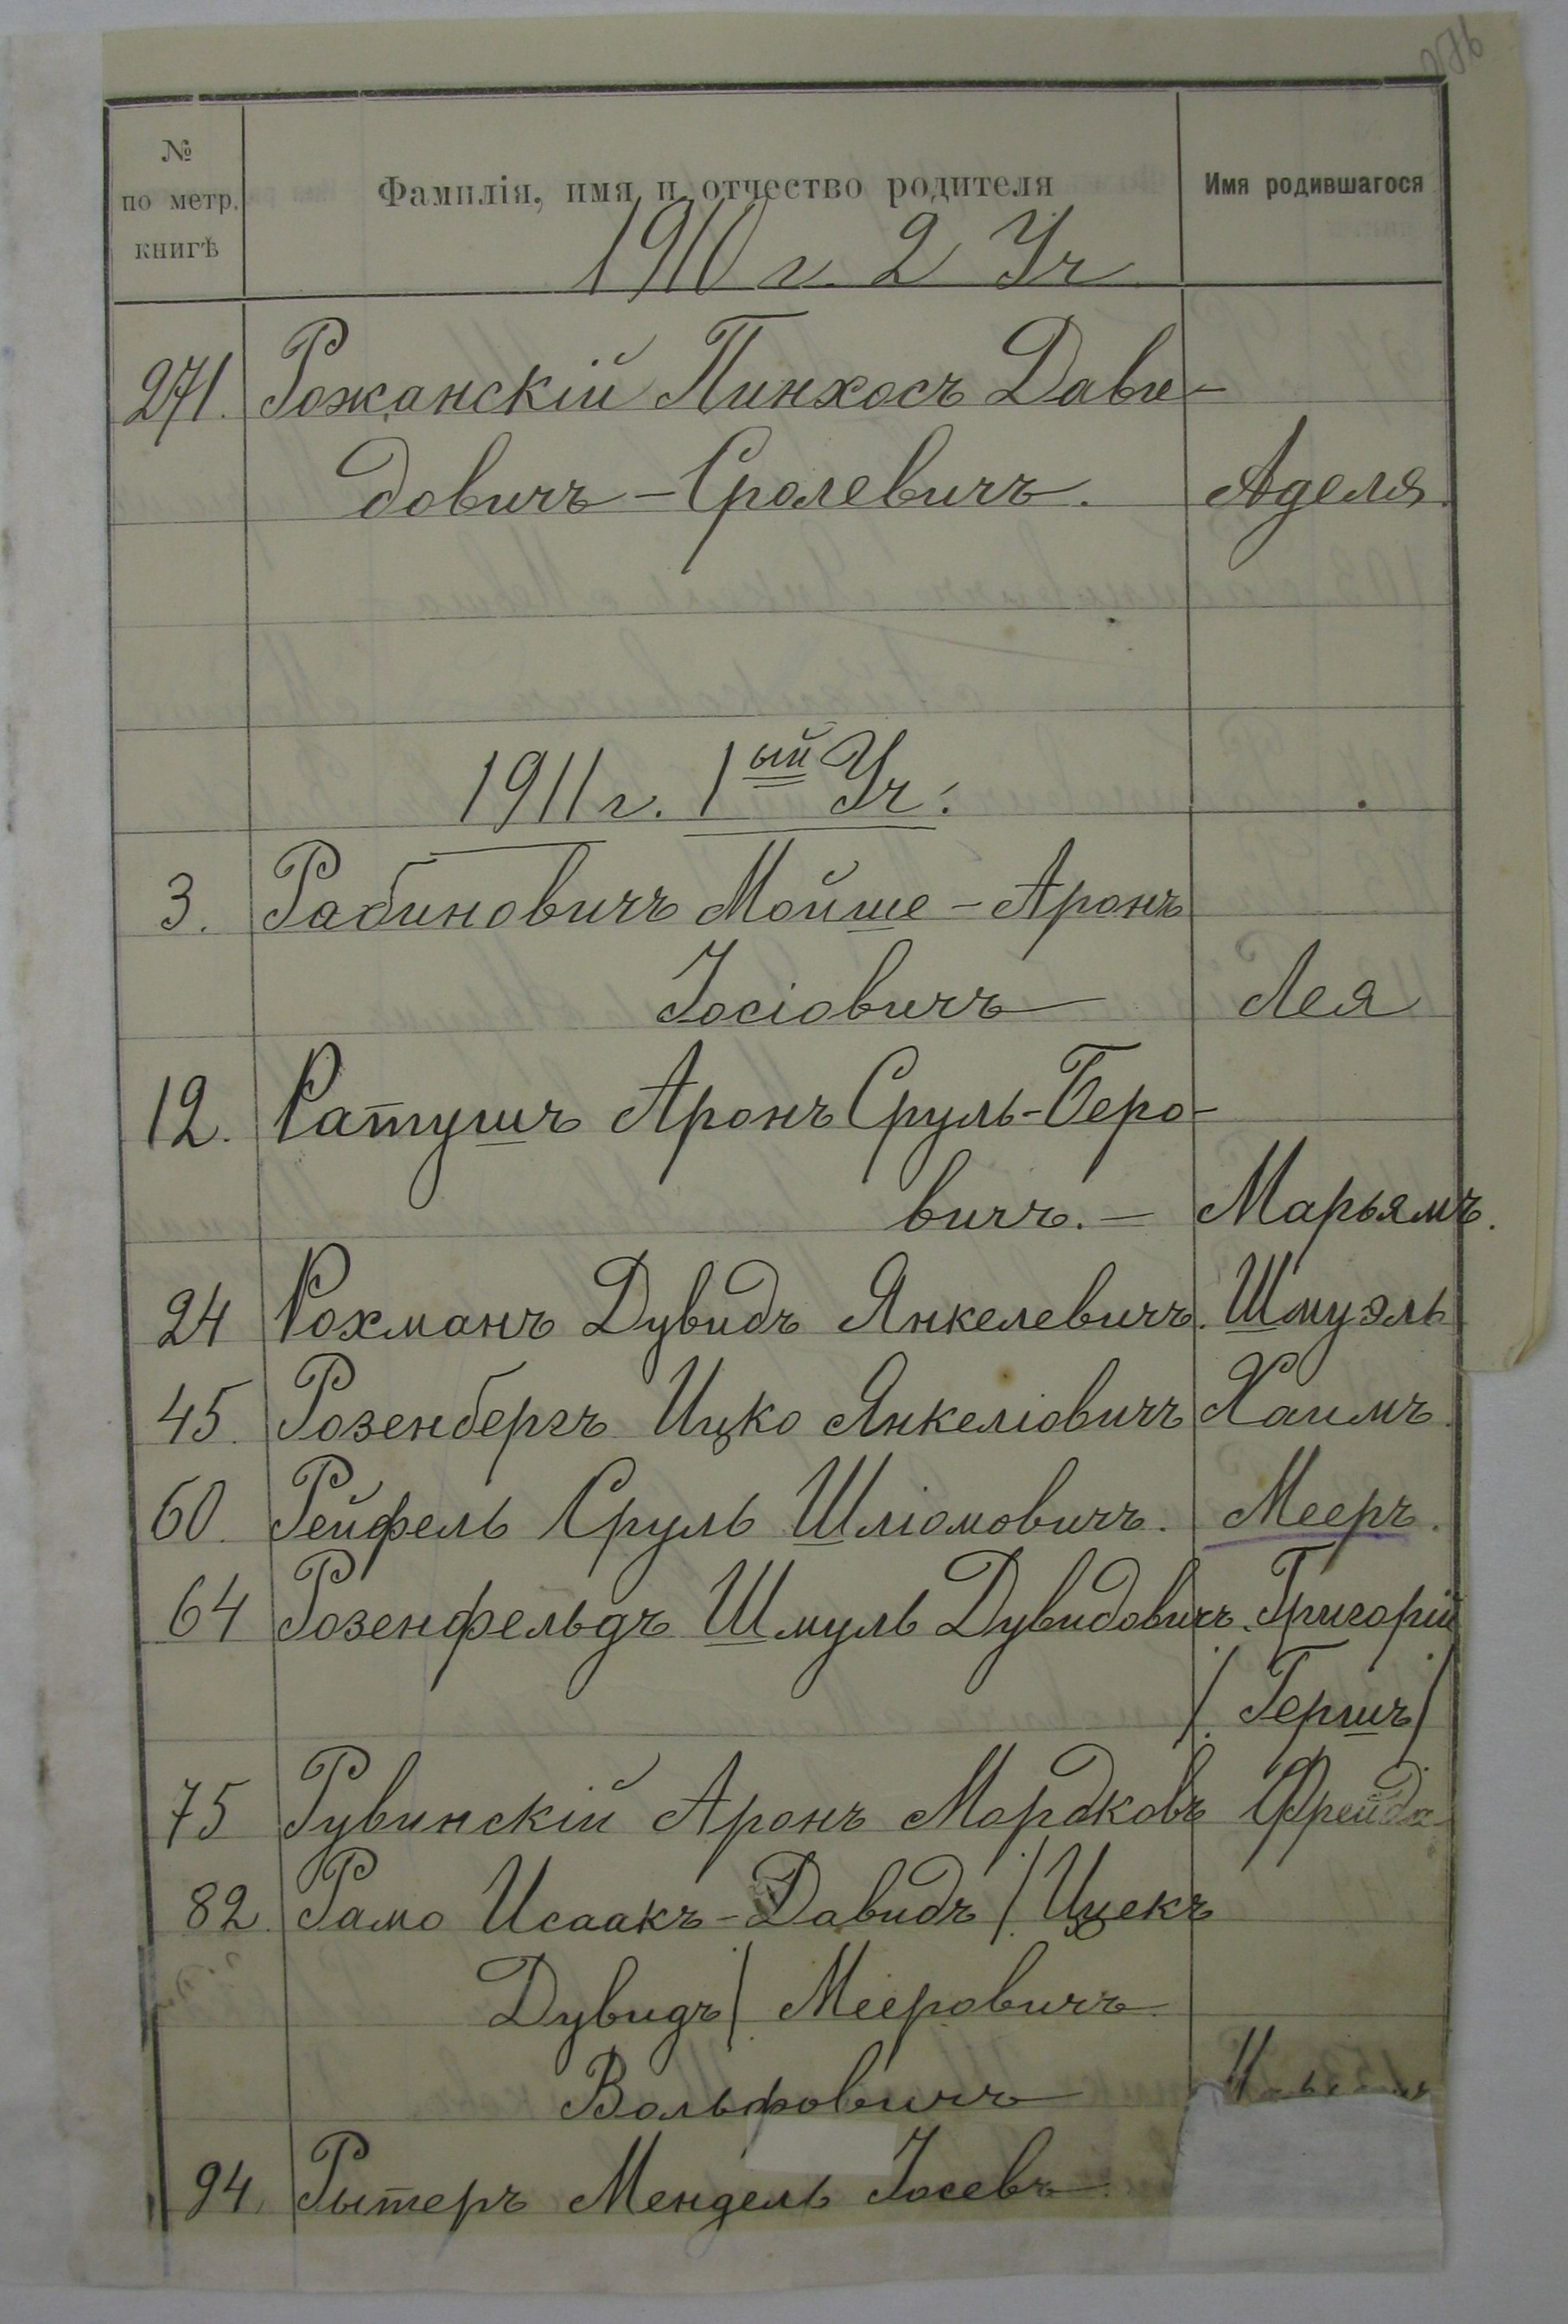 №
по метр.
книгѣ
Фамилія, имя и отчество родителя
Имя родившагося
1910 г. 2 Уч
271. Рожанскій Пинхосъ Дави-
довичъ-Сролевичъ. Аделя.
1911 г. 1ый Уч.
3. Рабиновичъ Мойше-Аронъ
Іосіовичъ Лея
12. Ратушъ Аронъ Сруль-Беро-
вичъ.- Марьямъ.
24 Рохманъ Дувидъ Янкелевичъ. Шмуэль
45. Розенбергъ Ицко Янкеліовичъ Хаимъ.
60. Рейфель Сруль Шліомовичъ. Мееръ.
64 Розенфельдъ Шмуль Дувидовичъ. Григорій
/Гершъ/
75 Рувинскій Аронъ Мордковъ Фрейда
82. Рамо Исаакъ-Давидъ /Ицекъ
Дувидъ/ Мееровичъ
Вольфовичъ
94. Рытеръ Мендель Іосевъ